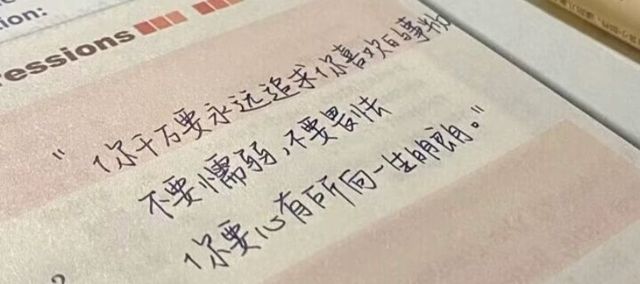 ion:
ressions
"你千万要永远追求你喜欢的事物
不要懦弱,不要畏怯
你要心有所向一生明朗。"
?